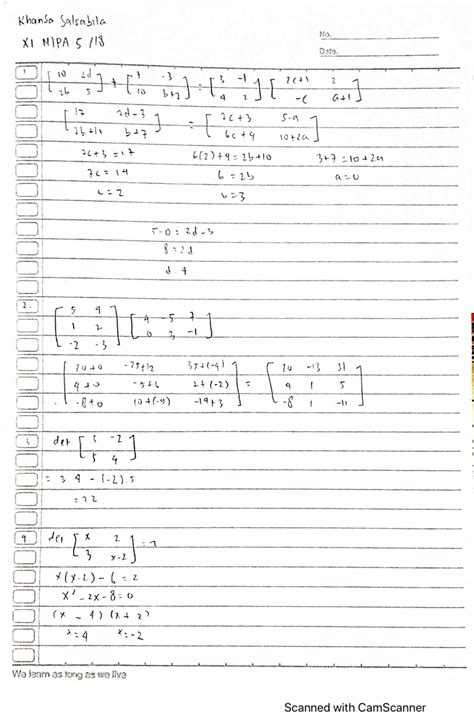 Khansa Salsabila
XI MIPA 5 /18
No.
Date.
1 [10 2d; 2b 5] + [7 -3; 10 b+2] = [3 -1; 4 2] [2c+1 2; -c a+1]
[17 2d-3; 2b+10 b+7] = [7c+3 5-a; 6c+4 10+2a]
7c+3=17 6(2)+4=2b+10 3+7=10+2a
7c=14 6=2b a=0
c=2 b=3
5-0=2d-3
8=2d
d=4
2. [5 4; 1 2; -2 -3] [4 -5 7; 0 3 -1]
[20+0 -25+12 35+(-4); 4+0 -5+6 7+(-2); -8+0 10+(-9) -14+3] = [20 -13 31; 4 1 5; -8 1 -11]
3 det [3 -2; 5 4]
= 3 4 - (-2).5
= 22
4 det [x 2; 3 x-2] = 2
x(x-2) - 6 = 2
x² - 2x - 8 = 0
(x - 4) (x + 2)
x = 4 x = -2
We learn as long as we live
Scanned with CamScanner